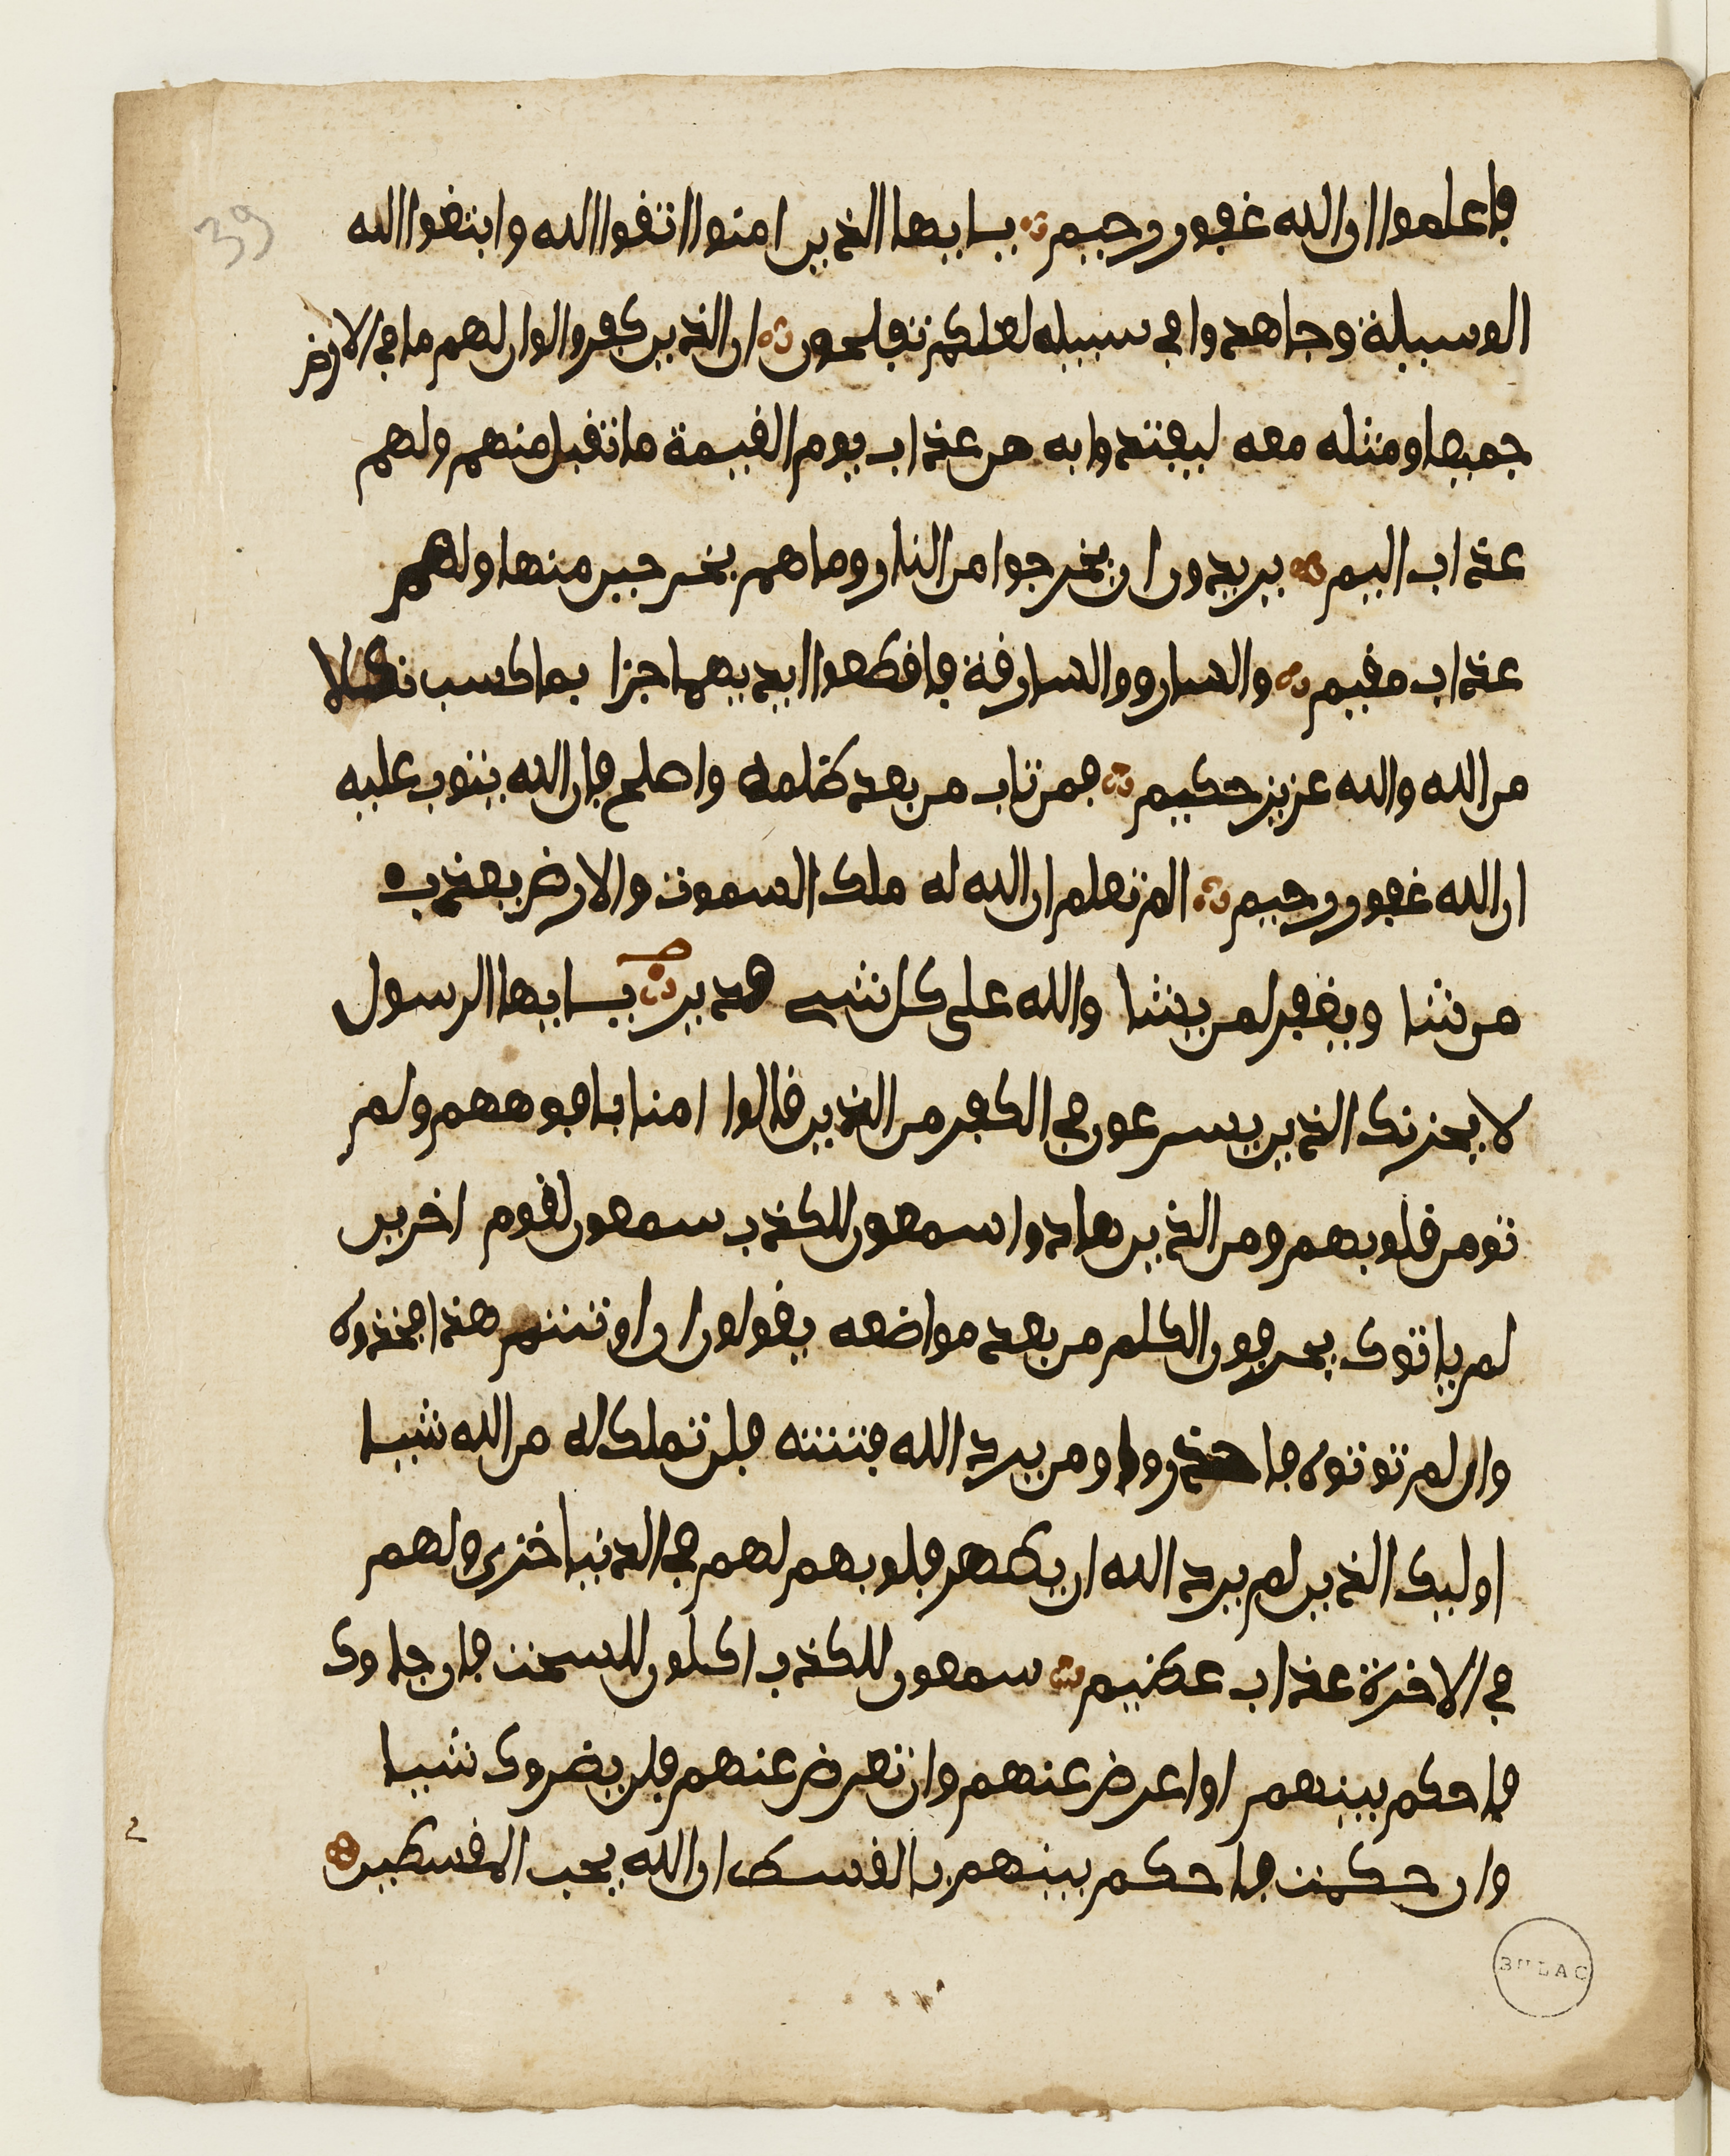 39
فاعلموا ان الله غفور رحيم يايها الذين امنوا اتقوا الله وابتغوا الله
الوسيلة وجاهدوا في سبيله لعلكم تفلحون ان الذين كفروا لو ان لهم ما في الارض
جميعا ومثله معه ليفتدوا به من عذاب يوم القيمة ما تقبل منهم ولهم
عذاب اليم يريدون ان يخرجوا من النار وما هم بخرجين منها ولهم
عذاب مقيم والسارق والسارقة فاقطعوا ايديهما جزا بما كسب نكلا
من الله والله عزيز حكيم فمن تاب من بعد ظلمه واصلح فان الله يتوب عليه
ان الله غفور رحيم الم تعلم ان الله له ملك السموت والارض يعذب
من تشا ويغفر لمن يشا والله على كل شي قدير يايها الرسول
لا يحزنك الذين يسرعون في الكفر من الذين قالوا امنا بافوههم ولم
تومن قلوبهم ومن الذين هادوا سمعون للكذب سمعون لقوم اخرين
لم ياتوك يحرفون الكلم من بعد مواضعه يقولون ان اوتيتم هذا فخذوه
وان لم توتوه فاحذروا ومن يرد الله فتنته فلن تملك له من الله شيا
اوليك الذين لم يرد الله ان يطهر قلوبهم لهم في الدنيا خزي ولهم
في الاخرة عذاب عظيم سمعون للكذب اكلون للسحت فان جاوك
فاحكم بينهم او اعرض عنهم وان تعرض عنهم فلن يضروك شيا
وان حكمت فاحكم بينهم بالقسط ان الله يحب المقسطين
BULAC